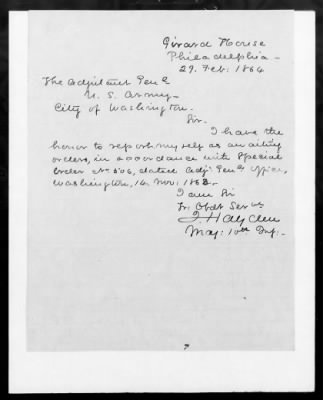 Girard House
Philadelphia -
29. Feb: 1864
The Adjutant Genl
U. S. Army -
City of Washington.
Sir.
I have the
honor to report myself as awaiting
orders, in accordance with Special
Order No 506, dated Adjt Genls Office,
Washington, 14. Nov: 1863.-
I am Sir
Yr. Obdt Servt
J. Hayden
Maj: 10th Inf:-